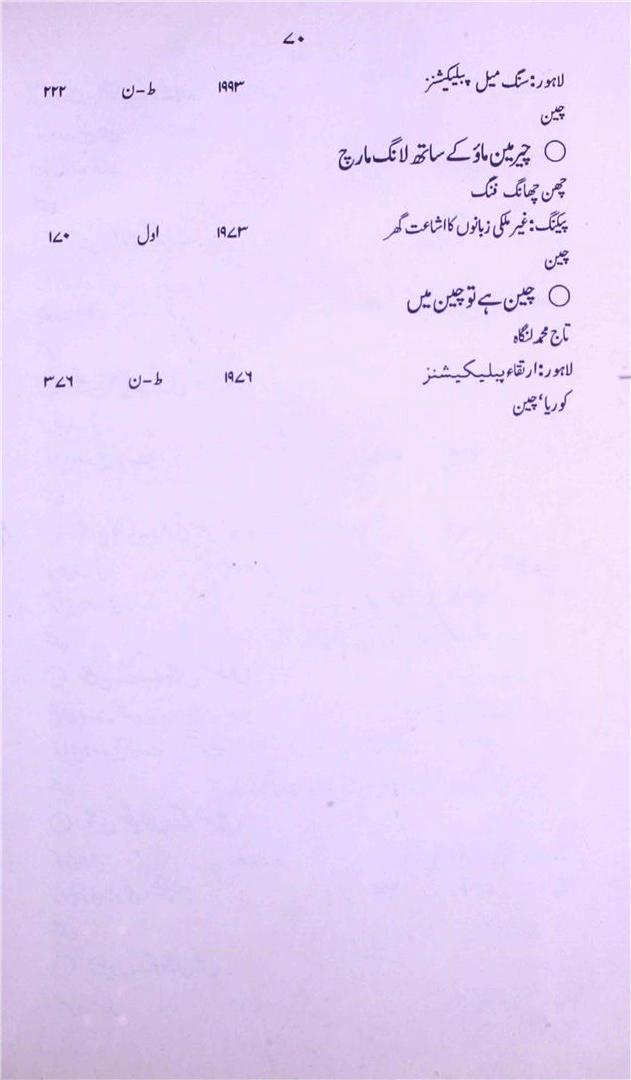 ۷۰
لاہور: سنگ میل پبلیکیشنز ۱۹۹۳ ط-ن ۲۲۲
چین
○ چیرمین ماؤ کے ساتھ لانگ مارچ
چھن چھانگ فنگ
پیکنگ: غیر ملکی زبانوں کا اشاعت گھر ۱۹۷۳ اول ۱۷۰
چین
○ چین ہے تو چین میں
تاج محمد لنگاہ
لاہور: ارتقاء پبلیکیشنز ۱۹۷۶ ط-ن ۳۷۶
کوریا، چین